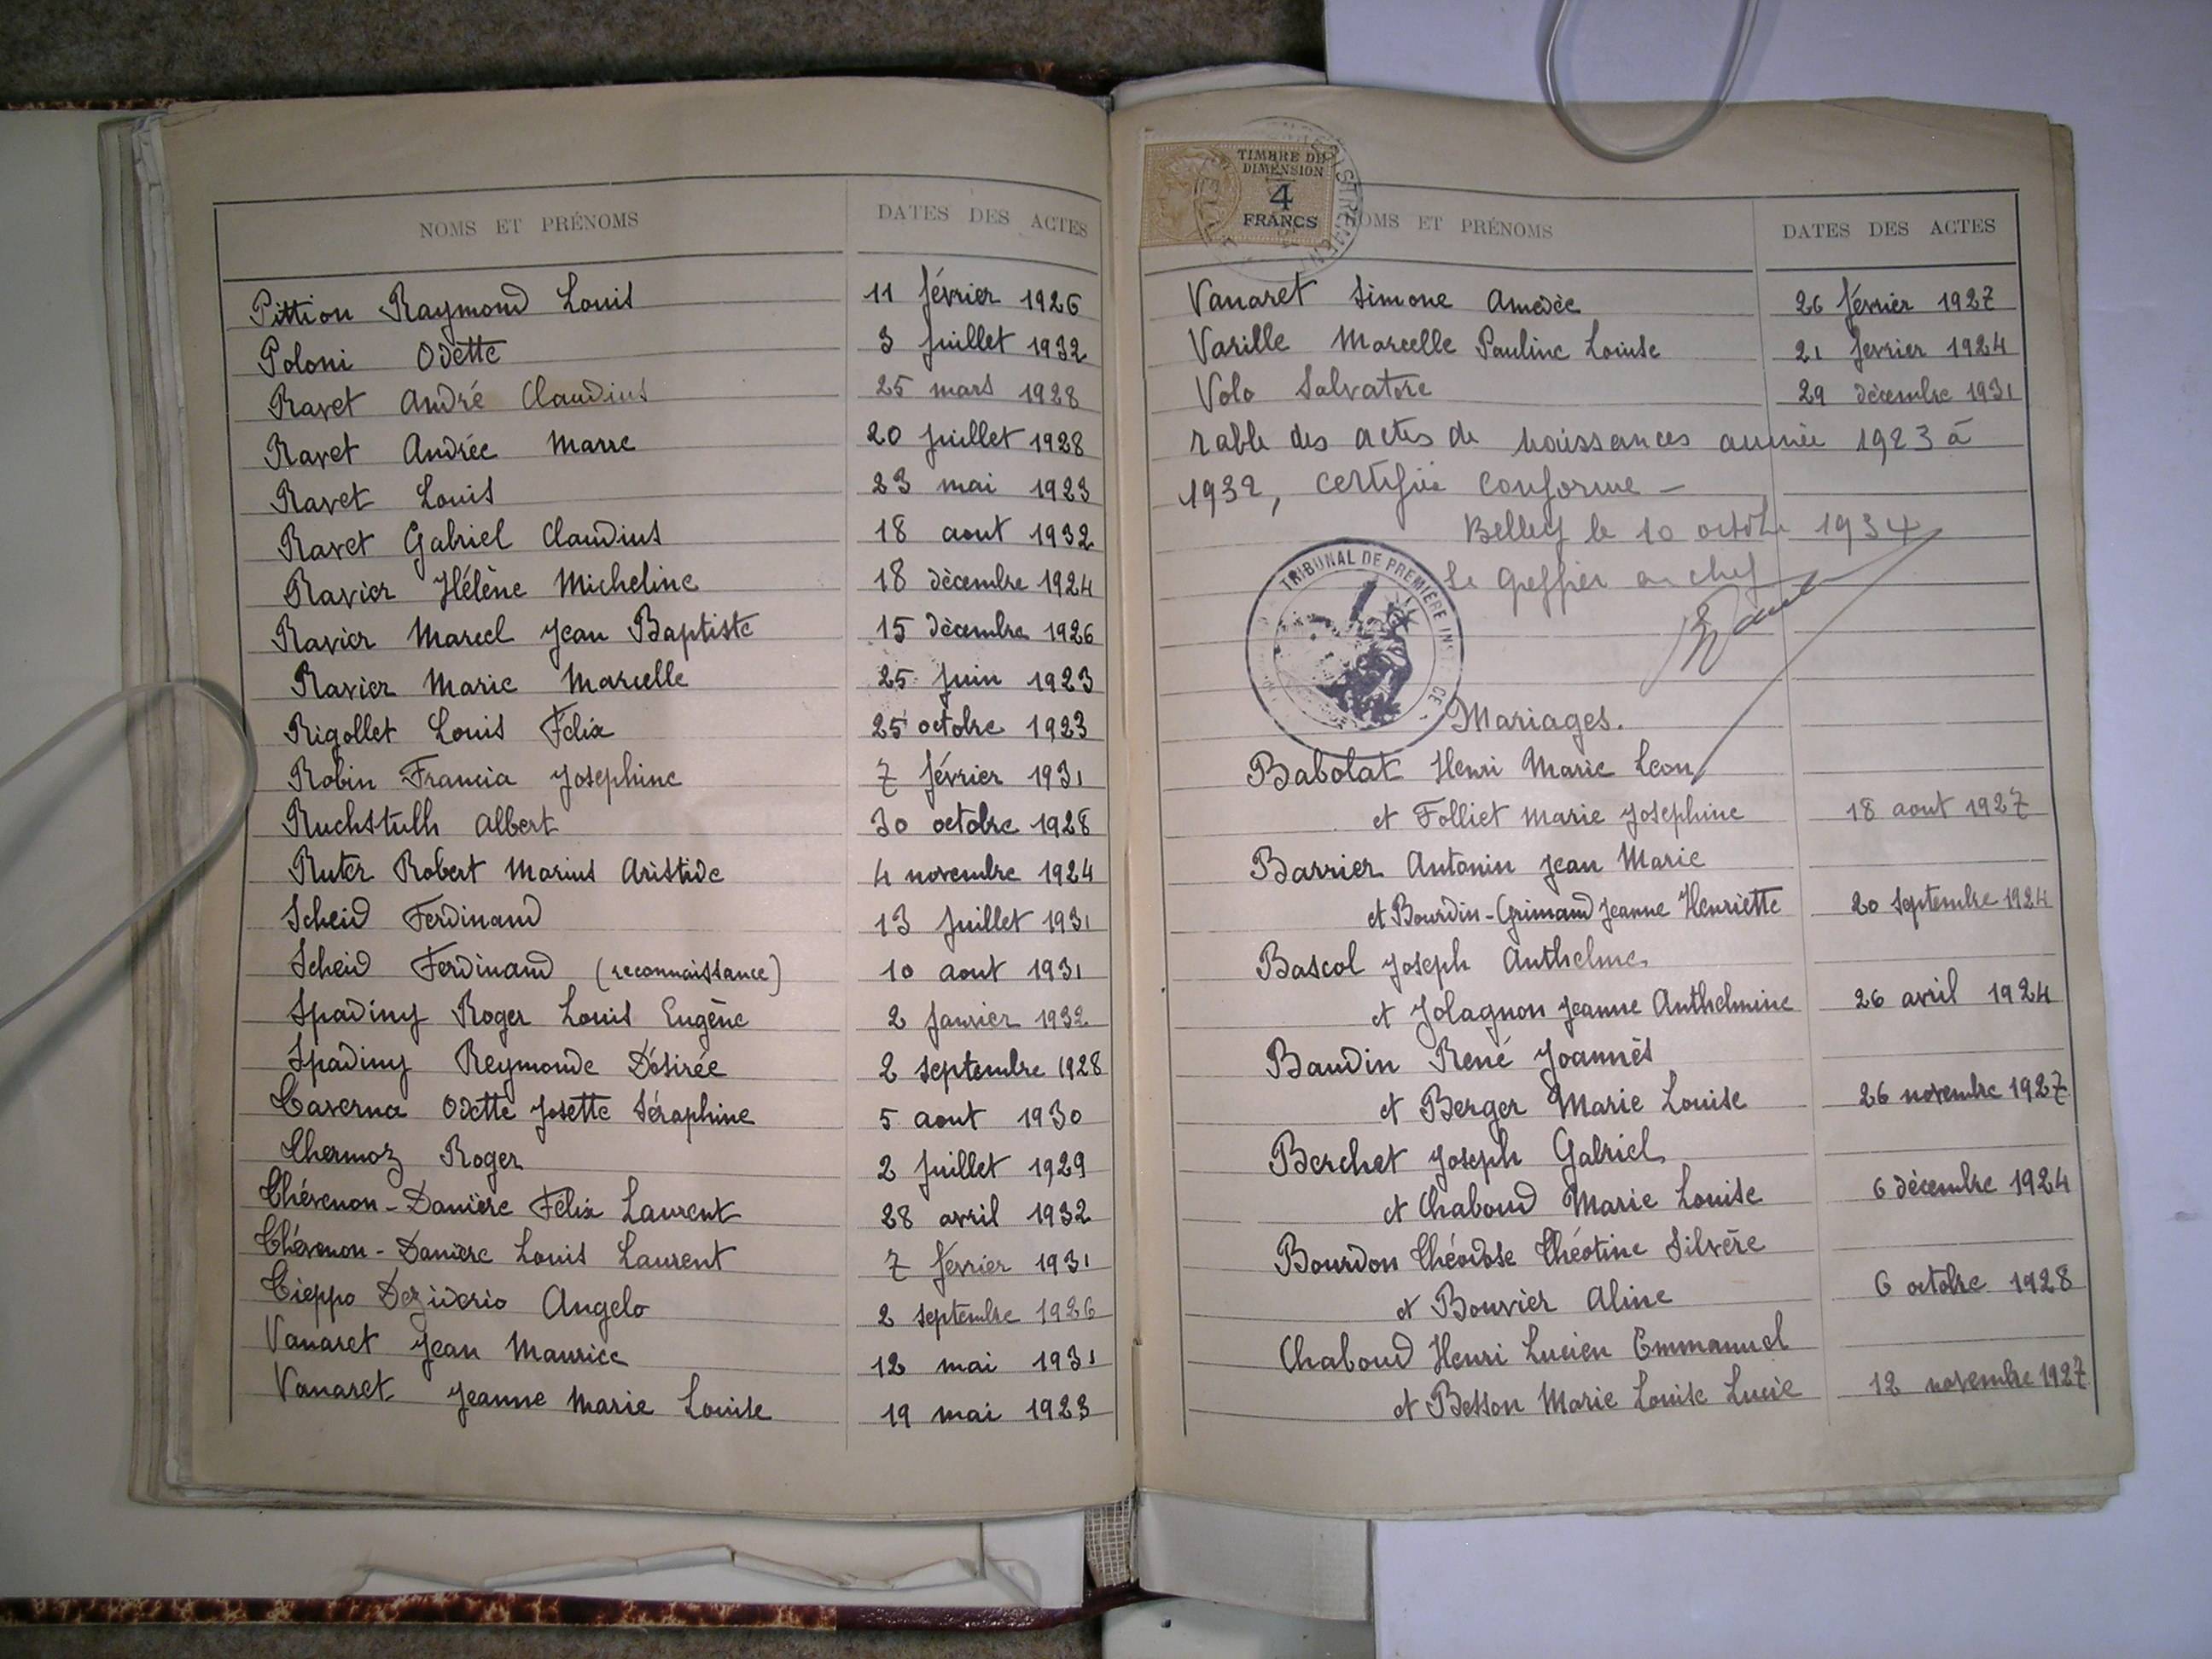 NOMS ET PRÉNOMS DATES DES ACTES
Pittion Raymond Louis 11 février 1926
Poloni Odette 3 juillet 1932
Ravet André Claudius 25 mars 1928
Ravet Andrée Marre 20 juillet 1928
Ravet Louis 23 mai 1923
Ravet Gabriel Claudius 18 aout 1932
Ravier Hélène Micheline 18 décembre 1924
Ravier Marcel Jean Baptiste 15 décembre 1926
Ravier Marie Marcelle 25 juin 1923
Rigollet Louis Félix 25 octobre 1923
Robin Francia Josephine 7 février 1931
Ruchstulh Albert 30 octobre 1928
Ruter Robert Marius Aristide 4 novembre 1924
Scheid Ferdinand 13 juillet 1931
Scheid Ferdinand (reconnaissance) 10 aout 1931
Spadiny Roger Louis Eugène 2 janvier 1932
Spadiny Reymonde Désirée 2 septembre 1928
Taverna Odette Josette Séraphine 5 aout 1930
Thermoz Roger 2 juillet 1929
Thévenon-Danière Félix Laurent 28 avril 1932
Thévenon-Danière Louis Laurent 7 février 1931
Tieppo Deziderio Angelo 2 septembre 1926
Vanaret Jean Maurice 12 mai 1931
Vanaret Jeanne Marie Louise 19 mai 1923
TIMBRE DE
DIMENSION
4
FRANCS
NOMS ET PRÉNOMS DATES DES ACTES
Vanaret Simone Amédée 26 février 1927
Varille Marcelle Pauline Louise 21 fevrier 1924
Volo Salvatore 29 décembre 1931
Table des actes de naissances année 1923 à
1932, certifiée conforme -
Belley le 10 octobre 1934
Le Greffier en chef
TRIBUNAL DE PREMIÈRE INSTANCE
Mariages.
Babolat Henri Marie Leon
et Folliet Marie Josephine 18 aout 1927
Barrier Antonin Jean Marie
et Bourdin-Grimaud Jeanne Henriette 20 septembre 1924
Bascol Joseph Anthelme
et Jolagnon Jeanne Anthelmine 26 avril 1924
Baudin René Joannès
et Berger Marie Louise 26 novembre 1927
Berchet Joseph Gabriel
et Chaboud Marie Louise 6 décembre 1924
Bourdon Théodose Théotine Silvère
et Bouvier Aline 6 octobre 1928
Chaboud Henri Lucien Emmanuel
et Besson Marie Louise Lucie 12 novembre 1927